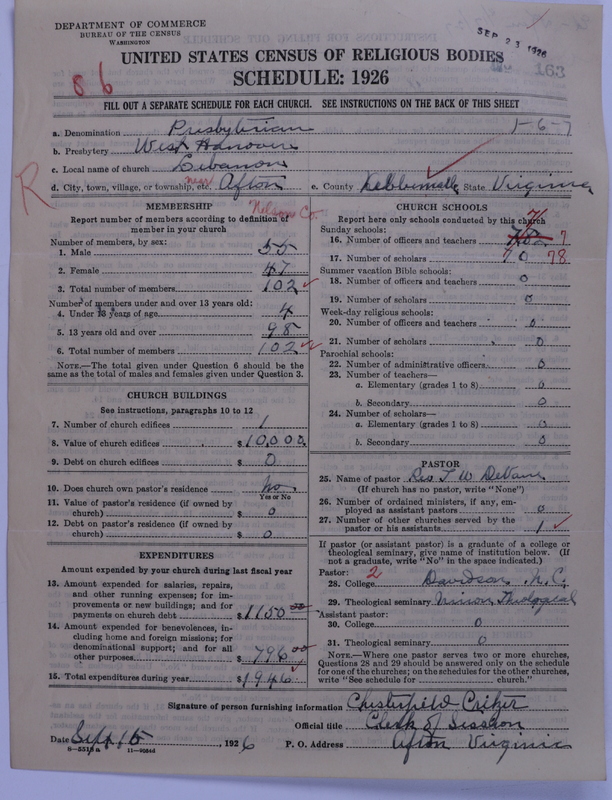 DEPARTMENT OF COMMERCE
BUREAU OF THE CENSUS
WASHINGTON
SEP 23 1926
163
UNITED STATES CENSUS OF RELIGIOUS BODIES
SCHEDULE: 1926
86
FILL OUT A SEPARATE SCHEDULE FOR EACH CHURCH. SEE INSTRUCTIONS ON THE BACK OF THIS SHEET
a. Denomination Presbyterian 1-6-7
b. Presbytery West Hanover
c. Local name of church Lebanon
d. City, town, village, or township, etc. near Afton e. County State Virginia
R
Nelson Co.
MEMBERSHIP
Report number of members according to definition of member in your church
Number of members, by sex:
1. Male 55
2. Female 47
3. Total number of members 102
Number of members under and over 13 years old:
4. Under 13 years of age 4
5. 13 years old and over 98
6. Total number of members 102
NOTE.—The total given under Question 6 should be
same as the total of males and females given under Question 3.
CHURCH BUILDINGS
See instructions, paragraphs 10 to 12
7. Number of church edifices 1
8. Value of church edifices $10,000
9. Debt on church edifices $ 0
10. Does church own pastor's residence No
Yes or No
11. Value of pastor's residence (if owned by
church) $ 0
12. Debt on pastor's residence (if owned by
church) $ 0
EXPENDITURES
Amount expended by your church during last fiscal year
13. Amount expended for salaries, repairs,
and other running expenses; for im-
provements or new buildings; and for
payments on church debt $1150 00
14. Amount expended for benevolences, in-
cluding home and foreign missions; for
denominational support; and for all
other purposes $ 796 00
15. Total expenditures during year $1946
CHURCH SCHOOLS
Report here only schools conducted by this church
Sunday schools:
16. Number of officers and teachers 7
17. Number of scholars 70 78
Summer vacation Bible schools:
18. Number of officers and teachers 0
19. Number of scholars 0
Week-day religious schools:
20. Number of officers and teachers 0
21. Number of scholars 0
Parochial schools:
22. Number of administrative officers 0
23. Number of teachers—
a. Elementary (grades 1 to 8) 0
b. Secondary 0
24. Number of scholars—
a. Elementary (grades 1 to 8) 0
b. Secondary 0
PASTOR
25. Name of pastor Rev T W DeVane
(If church has no pastor, write "None")
26. Number of ordained ministers, if any, em-
ployed as assistant pastors 0
27. Number of other churches served by the
pastor or his assistants 1
If pastor (or assistant pastor) is a graduate of a college or
theological seminary, give name of institution below. (If
not a graduate, write "No" in the space indicated.)
Pastor: 2
28. College Davidson N.C.
29. Theological seminary Union Theological
Assistant pastor:
30. College 0
31. Theological seminary 0
NOTE.—Where one pastor serves two or more churches,
Questions 28 and 29 should be answered only on the schedule
for one of the churches; on the schedules for the other churches,
write "See schedule for church."
Signature of person furnishing information Chesterfield Critzer
Official title Clerk of Session
Date Sept 15, 1926 P. O. Address Afton Virginia
8-5519a 11-9064d